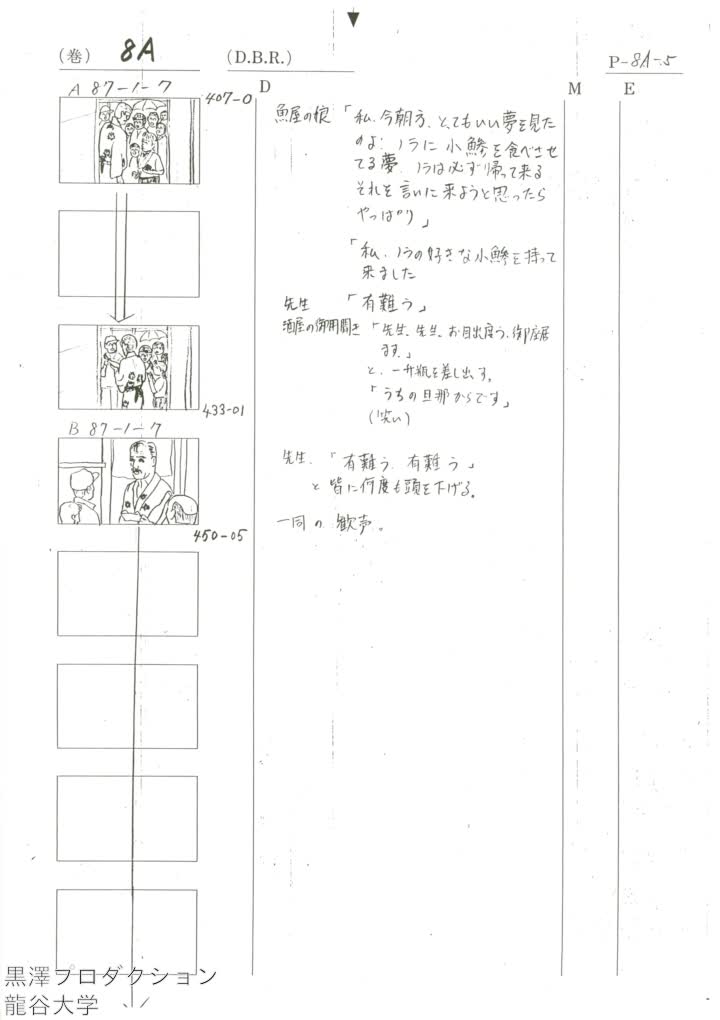 ▼
（巻） 8A （D.B.R.） P-8A-5
D M E
A 87-1-7
407-0
魚屋の娘 「私、今朝方、とてもいい夢を見た
のよ！ノラに小鯵を食べさせ
てる夢、ノラは必ず帰って来る
それを言いに来ようと思ったら
やっぱり」
「私、ノラの好きな小鯵を持って
来ました
先生 「有難う」
酒屋の御用聞き 「先生、先生、お目出度う、御座居
ます。」
と、一升瓶を差し出す。
「うちの旦那からです」
(笑い)
433-01
B 87-1-7
先生、「有難う、有難う」
と皆に何度も頭を下げる。
450-05
一同の歓声。
黒澤プロダクション
龍谷大学